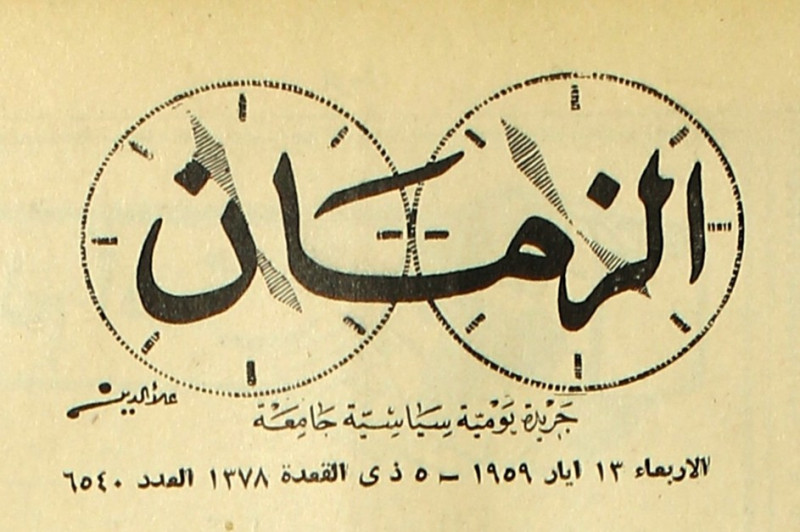 الزمان
علاءالدين
جريدة يومية سياسية جامعة
الاربعاء ١٣ ايار ١٩٥٩ – ٥ ذى القعدة ١٣٧٨ العدد ٦٥٤٠